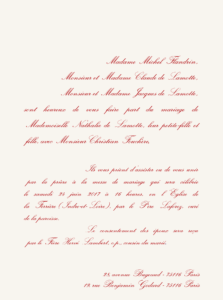 Madame Michel Flandrin,
Monsieur et Madame Claude de Lamotte,
Monsieur et Madame Jacques de Lamotte,
sont heureux de vous faire part du mariage de
Mademoiselle Nathalie de Lamotte, leur petite-fille et
fille, avec Monsieur Christian
Ils vous prient d'assister ou de vous unir
par la prière à la messe de mariage qui sera célébrée
le samedi 24 juin 2017 à 16 heures, en l'Eglise de
la (Indre-et-Loire), par le Père curé
de la paroisse.
Le consentement des époux sera reçu
par le Hervé cousin du marié.
75116 Paris
18 rue Benjamin Godard - 75116 Paris